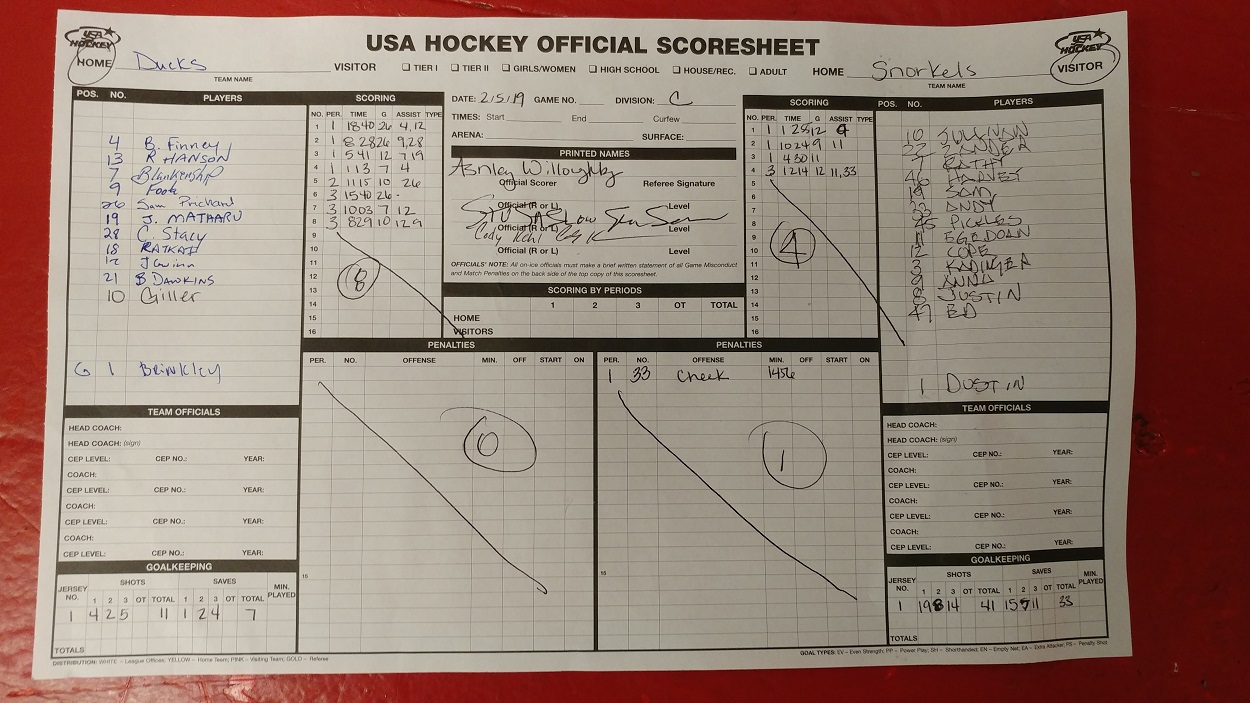 USA HOCKEY OFFICIAL SCORESHEET
USA HOCKEY
HOME Ducks
TEAM NAME
VISITOR
TIER I TIER II GIRLS/WOMEN HIGH SCHOOL HOUSE/REC. ADULT
HOME Snorkels
TEAM NAME
USA HOCKEY
VISITOR
POS. NO. PLAYERS
4 B. Finney
13 R HANSON
7 Blankenship
9 Foote
26 Sam Prichard
19 J. MATHARU
28 C. Stacy
18 RATKAI
12 J Gwinn
21 B DAWKINS
10 Giller
G 1 Brinkley
SCORING
NO. PER. TIME G ASSIST TYPE
1 1 1840 26 4,12
2 1 828 26 9,28
3 1 541 12 7,19
4 1 113 7 4
5 2 1115 10 26
6 3 1540 26 -
7 3 1003 7 12
8 3 829 10 12 9
9
10
11
12
13
14
15
16
8
DATE: 2/5/19 GAME NO. DIVISION: C
TIMES: Start End Curfew
ARENA: SURFACE:
PRINTED NAMES
Ashley Willoughby
Official Scorer Referee Signature
Official (R or L) Level
Official (R or L) Level
Cody Kehl
Official (R or L) Level
OFFICIALS' NOTE: All on-ice officials must make a brief written statement of all Game Misconduct
and Match Penalties on the back side of the top copy of this scoresheet.
SCORING BY PERIODS
1 2 3 OT TOTAL
HOME
VISITORS
SCORING
NO. PER. TIME G ASSIST TYPE
1 1 1251 12 9
2 1 1024 9 11
3 1 430 11
4 3 1214 12 11,33
5
6
7
8
9
10
11
12
13
14
15
16
4
POS. NO. PLAYERS
10 SULLIVAN
22 XANDER
7 KATHY
46 HARVEY
19 SAM
ANDY
PICKLES
11 EGRDOAN
12 COPE
3
9 ANNA
8 JUSTIN
47 BD
1 DUSTIN
PENALTIES
PER. NO. OFFENSE MIN. OFF START ON
15
0
PENALTIES
PER. NO. OFFENSE MIN. OFF START ON
1 33 Check 1456
15
1
TEAM OFFICIALS
HEAD COACH:
HEAD COACH: (sign)
CEP LEVEL: CEP NO.: YEAR:
COACH:
CEP LEVEL: CEP NO.: YEAR:
COACH:
CEP LEVEL: CEP NO.: YEAR:
COACH:
CEP LEVEL: CEP NO.: YEAR:
GOALKEEPING
JERSEY NO. SHOTS SAVES MIN. PLAYED
1 2 3 OT TOTAL 1 2 3 OT TOTAL
1 4 2 5 11 1 2 4 7
TOTALS
TEAM OFFICIALS
HEAD COACH:
HEAD COACH: (sign)
CEP LEVEL: CEP NO.: YEAR:
COACH:
CEP LEVEL: CEP NO.: YEAR:
COACH:
CEP LEVEL: CEP NO.: YEAR:
COACH:
CEP LEVEL: CEP NO.: YEAR:
GOALKEEPING
JERSEY NO. SHOTS SAVES MIN. PLAYED
1 2 3 OT TOTAL 1 2 3 OT TOTAL
1 19 8 14 41 15 7 11 33
TOTALS
DISTRIBUTION: WHITE – League Offices; YELLOW – Home Team; PINK – Visiting Team; GOLD – Referee
GOAL TYPES: EV – Even Strength; PP – Power Play; SH – Shorthanded; EN – Empty Net; EA – Extra Attacker; PS – Penalty Shot